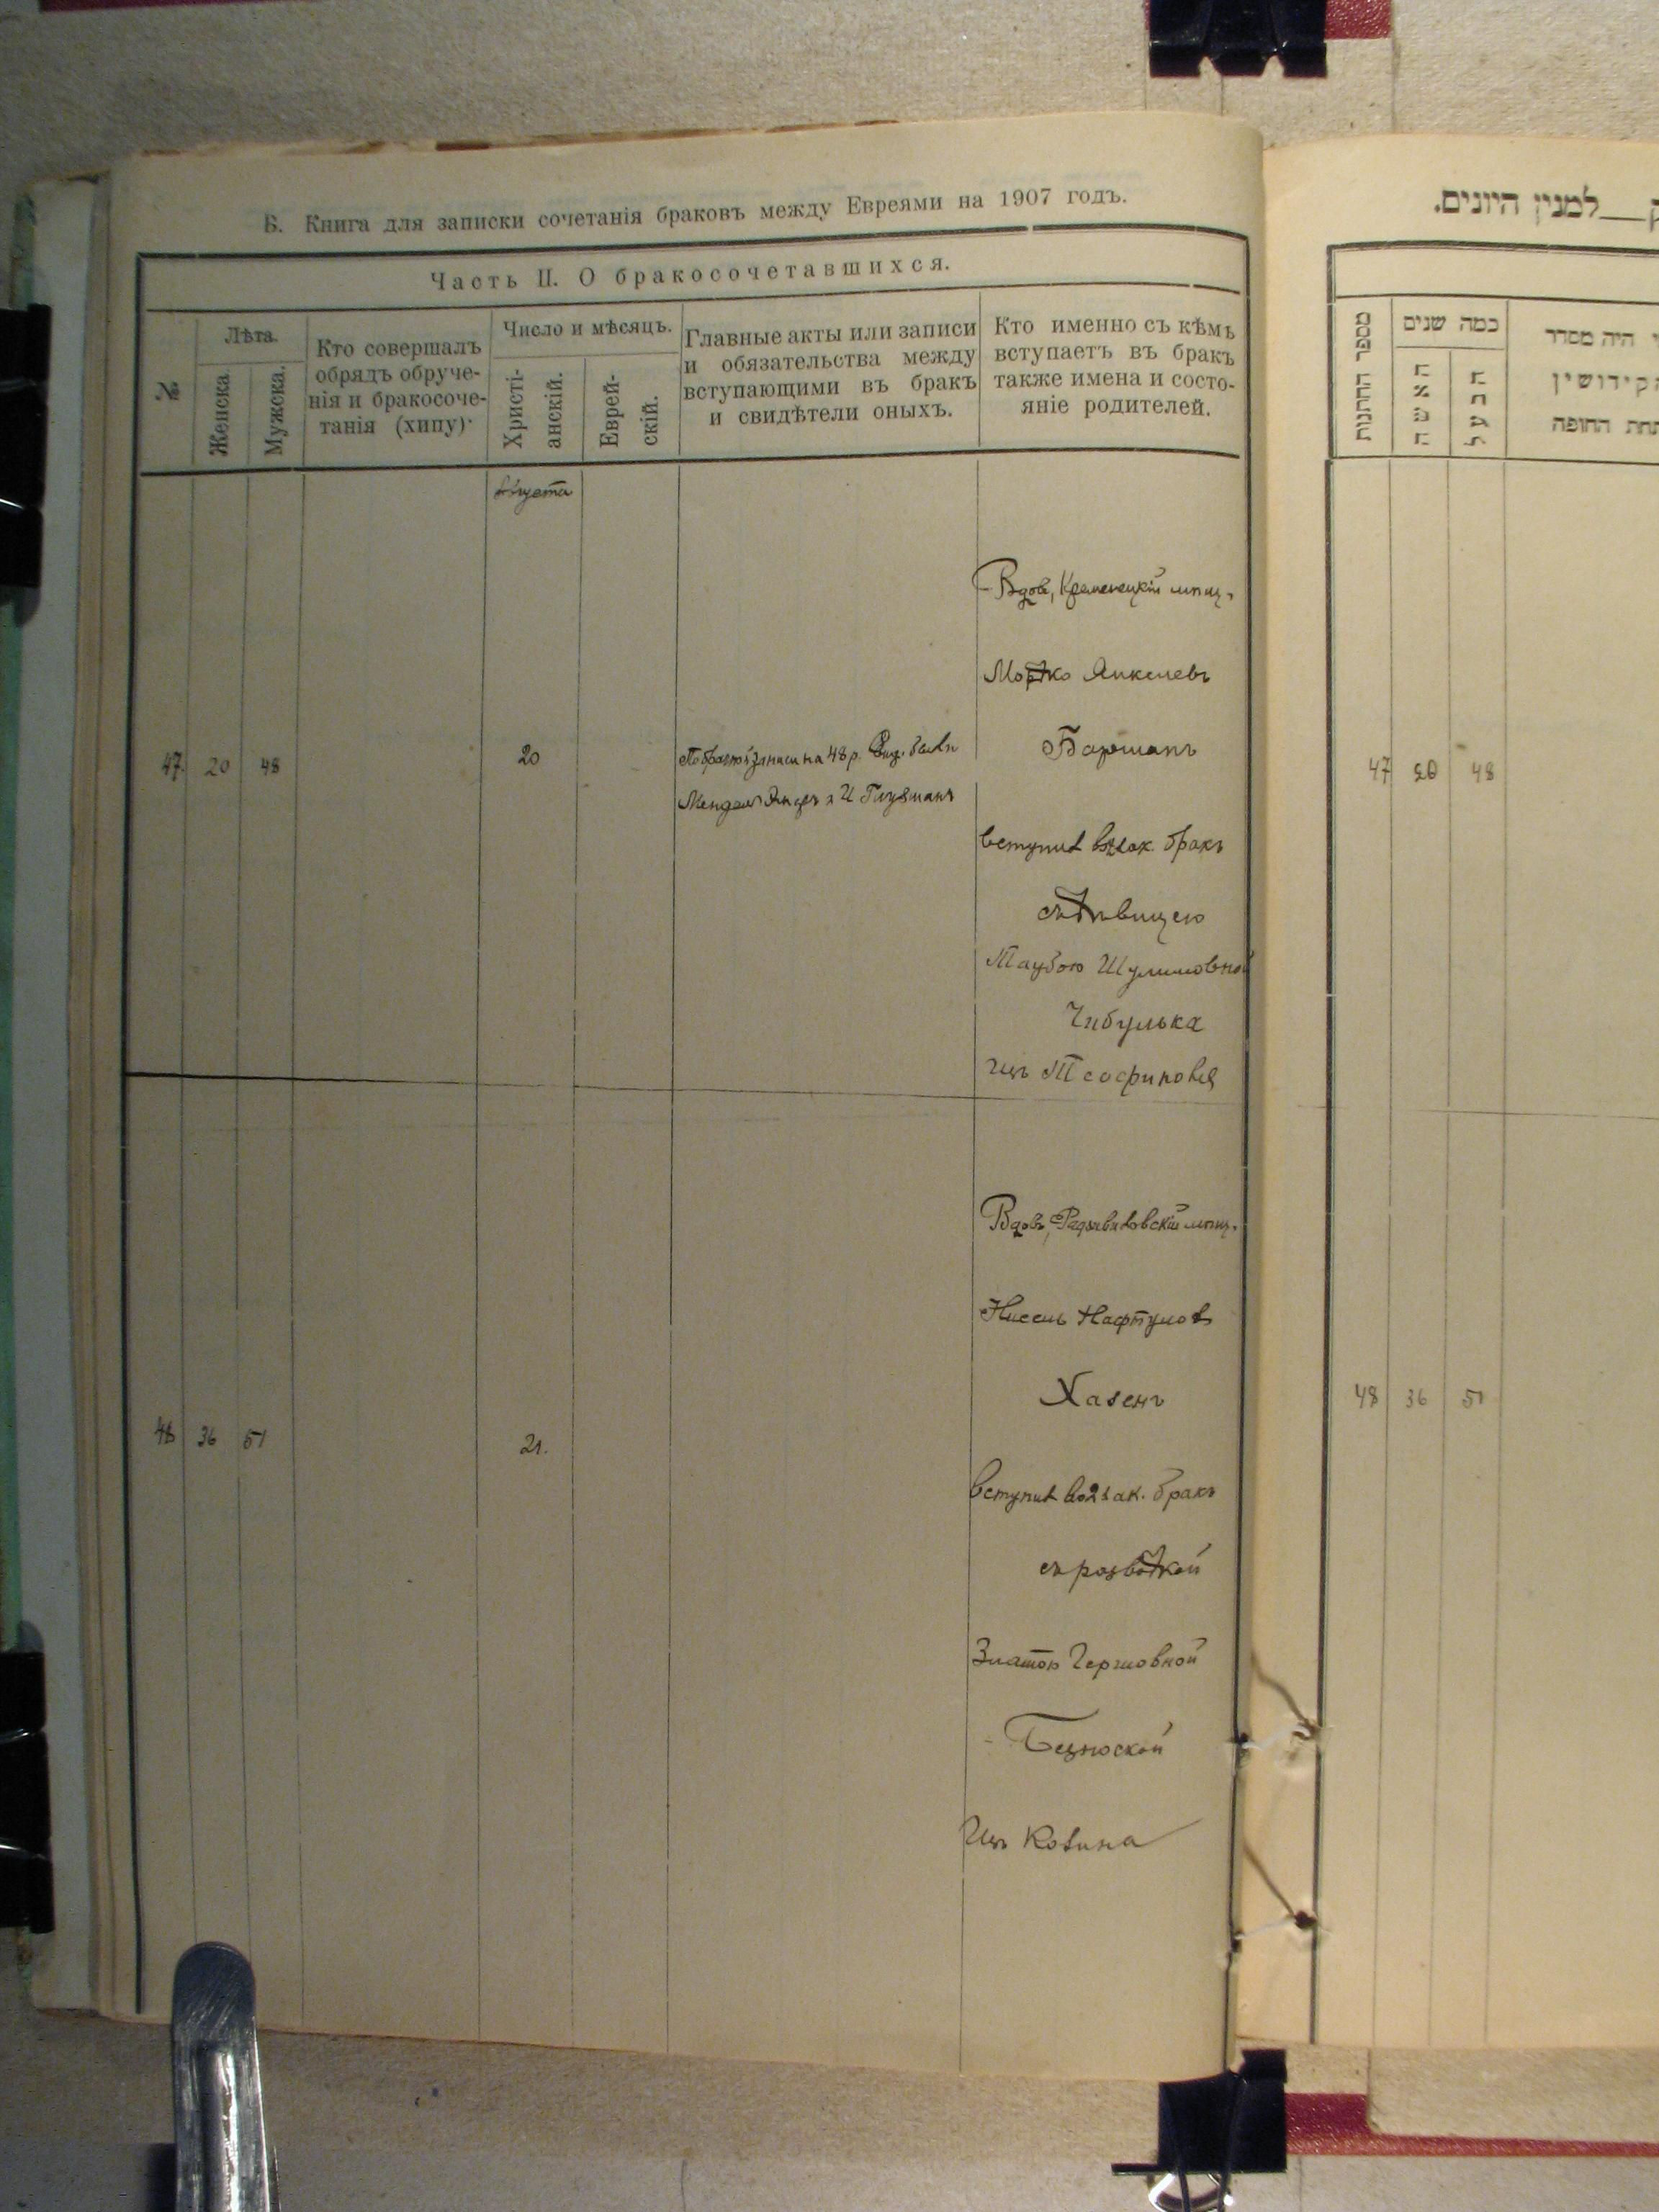 Б. Книга для записки сочетанія браковъ между Евреями на 1907 годъ.
Часть II. О бракосочетавшихся.
№
Лѣта.
Женска
Мужска.
Кто совершалъ
обрядъ обруче-
нія и бракосоче-
танія (хипу)
Число и мѣсяцъ.
Христі-
анскій.
Еврей-
скій.
Главные акты или записи
и обязательства между
вступающими въ бракъ
и свидѣтели оныхъ.
Кто именно съ кѣмъ
вступаетъ въ бракъ
также имена и состо-
яніе родителей.
Августа
47. 20 48
20
записи на 48 р.
Мендель И
Вдов, Кременецкій мѣщ.
Мордко Янкелевъ
вступил в зак. бракъ
съ дѣвицею
Таубою Шулимовной
Чибулька
изъ Теофиповка
48 36 51
21.
Вдовъ, Радзивиловскій мѣщ.
Ниссель Нафтулов
Хазенъ
вступил во 2 зак. бракъ
съ розводкой
Златою Гершовной
изъ Ковина
למנין היונים.
מספר החתונות
כמה שנים
האשה
הבעל
היה מסדר
קידושין
תחת החופה
47 20 48
48 36 51